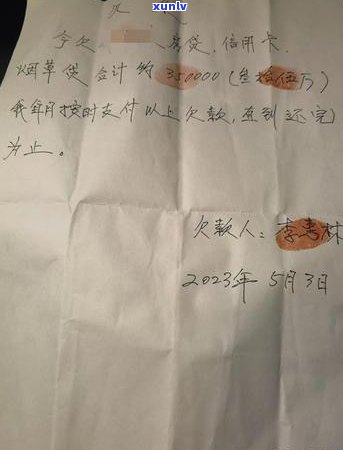 xunlv
今欠 房贷，信用卡.
烟草贷合计约350000(叁拾伍万)
我每月按时支付以上欠款，直到还完
为止。
欠款人：李 林
2023年 5月3日